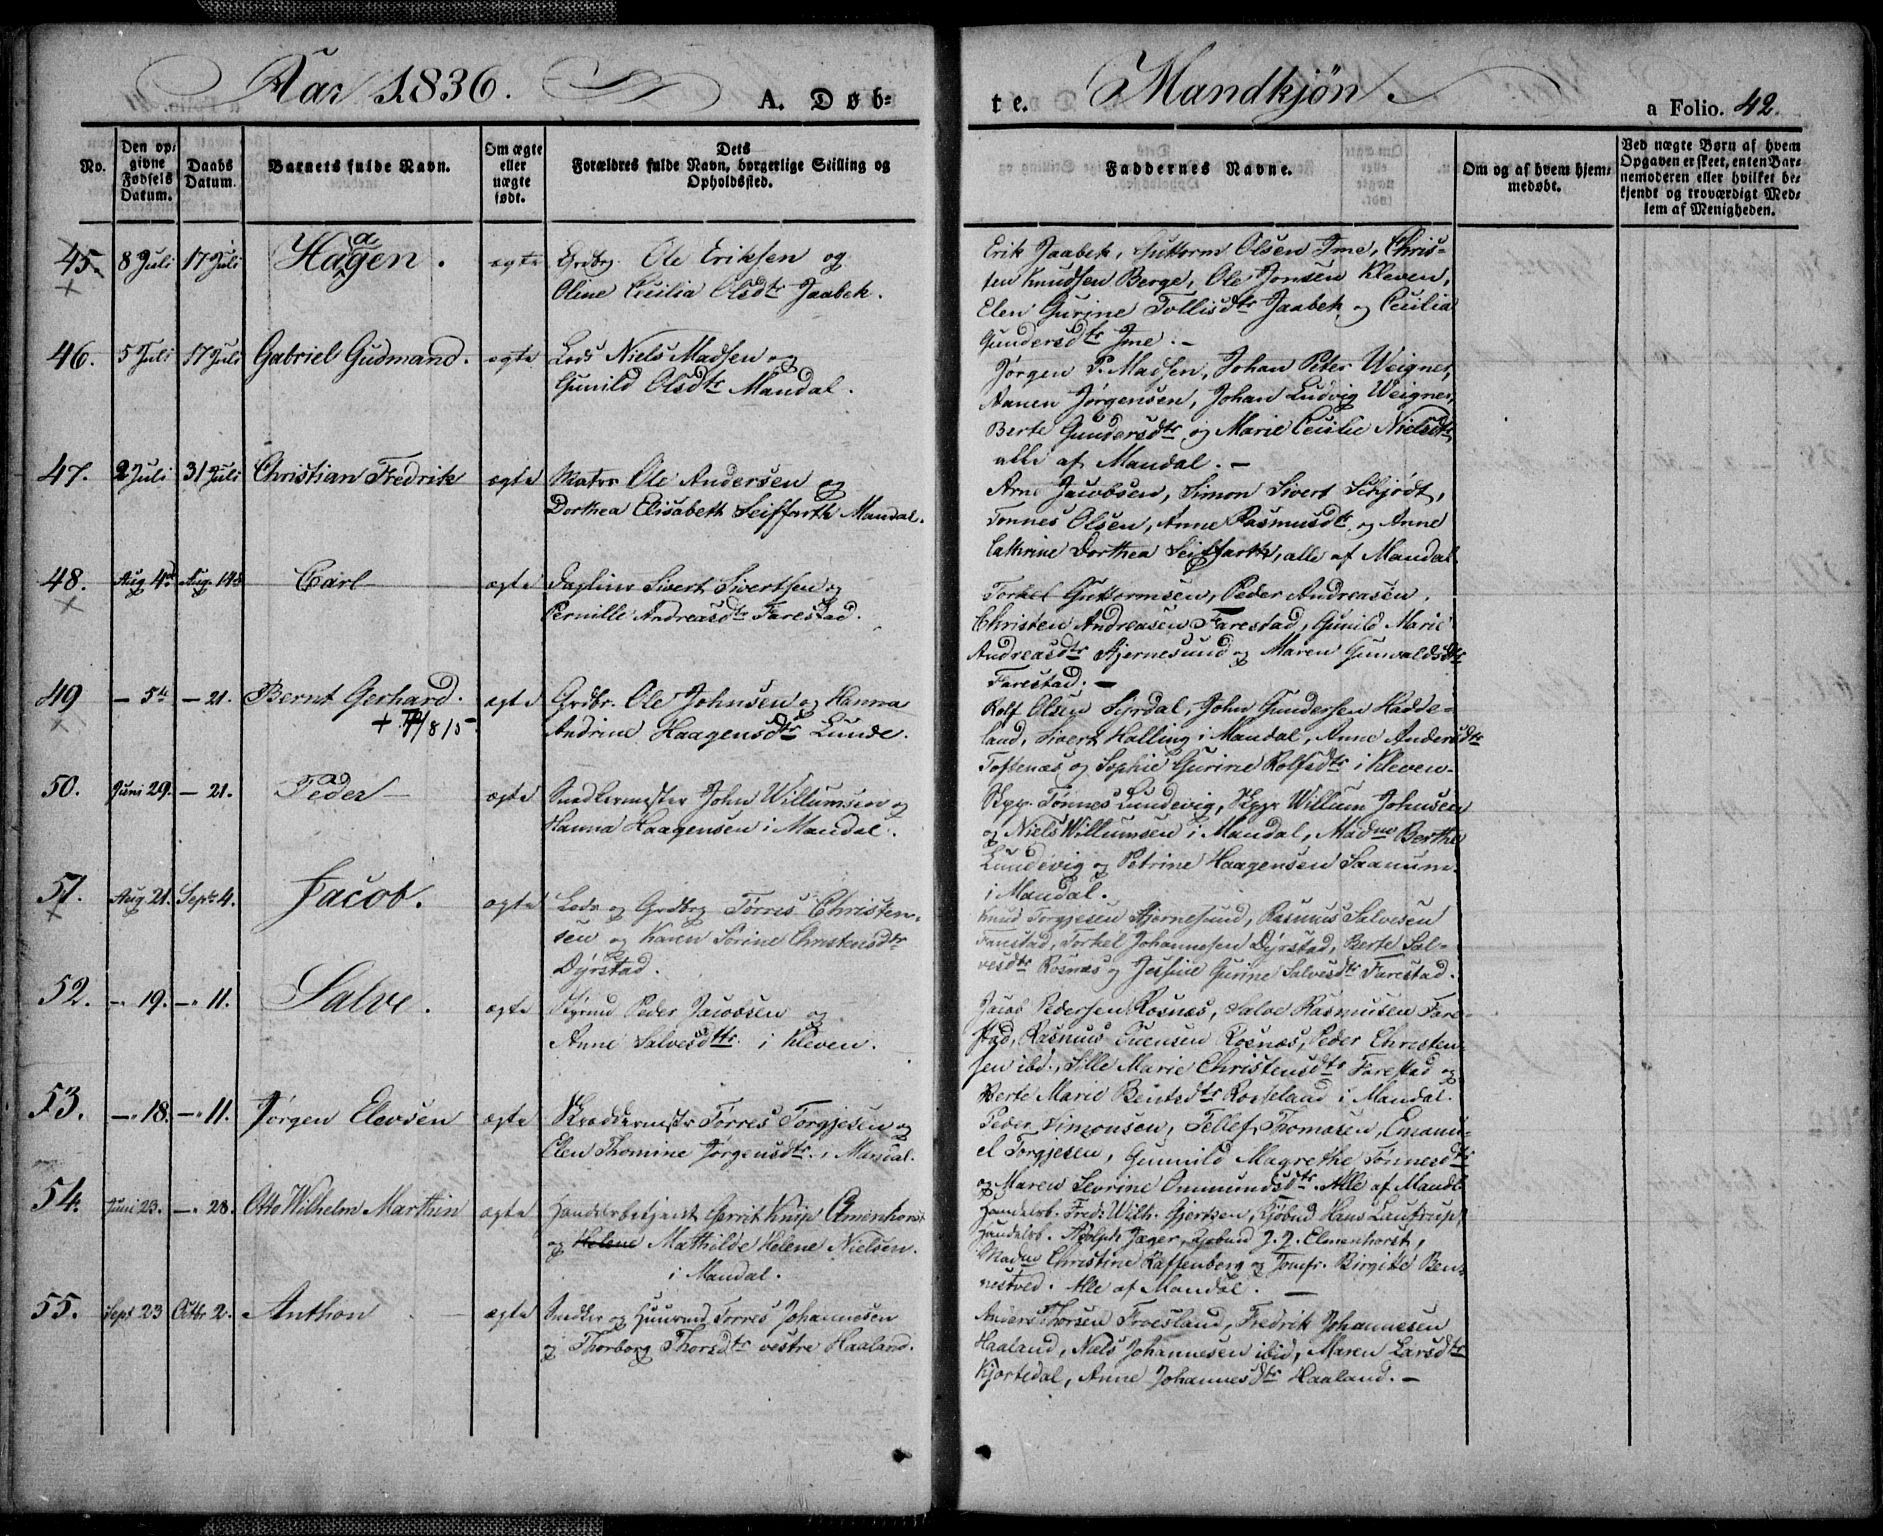 Aar 1836. A. Døb-
No.
Den op-
givne
Fødsels
Datum.
Daabs
Datum.
Barnets fulde Navn.
Om ægte
eller
uægte
født.
Dets
Forældres fulde Navn, borgerlige Stilling og
Opholdssted.
45. 8 Juli 17 Juli Haagen. ægte Grdbrg. Ole Eriksen og
Oline Cecilia Olsdtr Jaabek.
46. 5 Juli 17 Juli Gabriel Gudmand. ægte Lods Niels Madsen og
Gunild Olsdtr Mandal.
47. 2 Juli 31 Juli Christian Fredrik ægte Matrs Ole Andersen og
Dorthea Elisabeth Seiffarth Mandal.
48. Aug 4de Aug. 14de Carl ægte Sivert Sivertsen og
Pernille Andreasdtr Farestad.
49 — 5te — 21. Bernt Gerhard. ægte Grdbr. Ole Johnsen og Hanna
Andrine Haagensdtr Lunde.
50. Juni 29. — 21. Peder ægte Snedkermester John Willumsen og
Hanna Haagensen i Mandal.
51. Aug. 21. Septr 4. Jacob. ægte Lods og Grdbrg Tørres Christen-
sen og Karen Sørine Christensdtr
Dyrstad.
52. —" 19. —" 11. Salve. ægte Styrmd Peder Jacobsen og
Anne Salvesdtr i Kleven.
53. —" 18. —" 11. Jørgen Elevsen ægte Skræddermestr Tørres Torgjesen og
Elen Thomine Jørgensdtr. i Mandal.
54. Juni 23. —" 28. Otto Wilhelm Marthin ægte Handelsbetjent Gerrit Knip Elmenhorst
og Helene Mathilde Helene Nielsen.
i Mandal.
55. Sept 23 Octbr 2. Anthon ægte Snedker og Huusmd Tørres Johannesen
og Thorborg Thorsdtr vestre Haaland.
te. Mandkjøn. a Folio. 42.
Faddernes Navne.
Om og af hvem hjem-
medøbt.
Ved uægte Børn af hvem
Opgaven er skeet, enten Bar-
nemoderen eller hvilket be-
kjendt og troværdigt Med-
lem af Menigheden.
Erik Jaabek, Guttorm Olsen Ime, Chris-
ten Knudsen Berge, Ole Jonsen Kleven,
Elen Gurine Tollisdtr Jaabek og Cecilia
Gundersdtr Ime. —
Jørgen P. Madsen, Johan Peter Weigner,
Aanen Jørgensen, Johan Ludvig Weigner,
Berte Gundersdtr og Marie Cecilie Nielsdtr
alle af Mandal. —
Arne Jacobsen, Simon Sivert Schjødt,
Tønnes Olsen, Anne Rasmusdtr og Anne
Cathrine Dorthea Seiffarth, alle af Mandal
Torkel Guttormsen, Peder Andreasen,
Christen Andreasen Farestad, Gunild Marie
Andreasdtr Hjernesund og Maren Gunvaldsdtr
Farestad. —
Rolf Olsen Syrdal, John Gundersen Hadde-
land, Sivert Halling i Mandal, Anne Andersdtr
Toftenæs og Sophie Gurine Rolfsdtr i Kleven
Skpp. Tønnes Lundevig, Skppr Willum Johnsen
og Niels Willumsen i Mandal, Madme Berthe
Lundevig og Petrine Haagensen Saanum
i Mandal.
Knud Torgjesen Hjernesund, Rasmus Salvesen
Farestad, Torkel Johannesen Dyrstad, Berte Sal-
vesdtr Rosnæs og Jessine Gurine Salvesdtr Farestad.
Jacob Pedersen Rosnæs, Salve Rasmusen Fare-
stad, Rasmus Evensen Rosnæs, Peder Christen-
sen ibd., Sille Marie Christensdtr Farestad og
Berte Marie Bentsdtr Rosseland i Mandal.
Peder Simonsen, Tellef Thomasen, Emanu-
el Torgjesen, Gunnild Magrethe Tønnesdtr
og Maren Sevrine Ommundsdtr. Alle af Mandl
Handelsb. Fredr Wilh. Gjertsen, Kjøbmd Hans Lautrup,
Handelsb. Adolph Jæger, Kjøbmd J. J. Elmenhorst,
Madme Christine Raffenberg og Jomfr. Birgitte Ben-
nestved. Alle af Mandal. —
Anders Thorsen Froesland, Fredrik Johannesen
Haaland, Niels Johannesen ibid, Maren Larsdtr
Hjortedal, Anne Johannesdtr Haaland. —